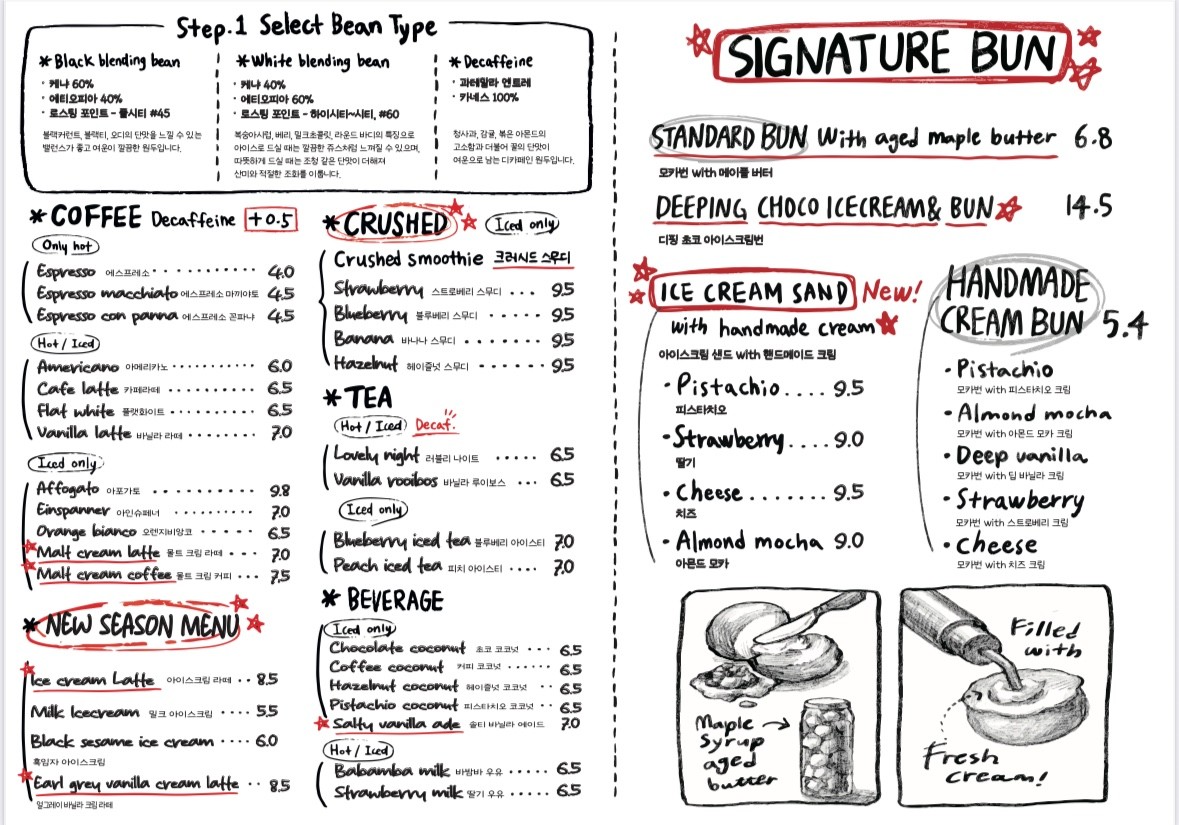 Step.1 Select Bean Type
* Black blending bean
· 케냐 60%
· 에티오피아 40%
· 로스팅 포인트 - 풀시티 #45
블랙커런트, 블랙티, 오디의 단맛을 느낄 수 있는
밸런스가 좋고 여운이 깔끔한 원두입니다.
* White blending bean
· 케냐 40%
· 에티오피아 60%
· 로스팅 포인트 - 하이시티~시티, #60
복숭아시럽, 베리, 밀크초콜릿, 라운드 바디의 특징으로
아이스로 드실 때는 깔끔한 쥬스처럼 느껴질 수 있으며,
따뜻하게 드실 때는 조청 같은 단맛이 더해져
산미와 적절한 조화를 이룹니다.
* Decaffeine
· 과테말라 엔트레
· 카네스 100%
청사과, 감귤, 볶은 아몬드의
고소함과 더불어 꿀의 단맛이
여운으로 남는 디카페인 원두입니다.
* COFFEE Decaffeine +0.5
Only hot
Espresso 에스프레소 4.0
Espresso macchiato 에스프레소 마끼야또 4.5
Espresso con panna 에스프레소 꼰파냐 4.5
Hot / Iced
Americano 아메리카노 6.0
Cafe latte 카페라떼 6.5
Flat white 플랫화이트 6.5
Vanilla latte 바닐라 라떼 7.0
Iced only
Affogato 아포가토 9.8
Einspanner 아인슈페너 7.0
Orange bianco 오렌지비앙코 6.5
Malt cream latte 몰트 크림 라떼 7.0
Malt cream coffee 몰트 크림 커피 7.5
* NEW SEASON MENU
Ice cream Latte 아이스크림 라떼 8.5
Milk Icecream 밀크 아이스크림 5.5
Black sesame ice cream 6.0
흑임자 아이스크림
Earl grey vanilla cream latte 8.5
얼그레이 바닐라 크림 라떼
* CRUSHED Iced only
Crushed smoothie 크러시드 스무디
Strawberry 스트로베리 스무디 9.5
Blueberry 블루베리 스무디 9.5
Banana 바나나 스무디 9.5
Hazelnut 헤이즐넛 스무디 9.5
* TEA
Hot / Iced Decaf.
Lovely night 러블리 나이트 6.5
Vanilla rooibos 바닐라 루이보스 6.5
Iced only
Blueberry iced tea 블루베리 아이스티 7.0
Peach iced tea 피치 아이스티 7.0
* BEVERAGE
Iced only
Chocolate coconut 초코 코코넛 6.5
Coffee coconut 커피 코코넛 6.5
Hazelnut coconut 헤이즐넛 코코넛 6.5
Pistachio coconut 피스타치오 코코넛 6.5
Salty vanilla ade 솔티 바닐라 에이드 7.0
Hot / Iced
Babamba milk 바밤바 우유 6.5
Strawberry milk 딸기 우유 6.5
SIGNATURE BUN
STANDARD BUN With aged maple butter 6.8
모카번 with 메이플 버터
DEEPING CHOCO ICECREAM& BUN 14.5
디핑 초코 아이스크림번
ICE CREAM SAND New!
with handmade cream
아이스크림 샌드 with 핸드메이드 크림
· Pistachio 9.5
피스타치오
· Strawberry 9.0
딸기
· Cheese 9.5
치즈
· Almond mocha 9.0
아몬드 모카
HANDMADE
CREAM BUN 5.4
· Pistachio
모카번 with 피스타치오 크림
· Almond mocha
모카번 with 아몬드 모카 크림
· Deep vanilla
모카번 with 딥 바닐라 크림
· Strawberry
모카번 with 스트로베리 크림
· Cheese
모카번 with 치즈 크림
Maple
Syrup
aged
butter
Filled
with
Fresh
cream!